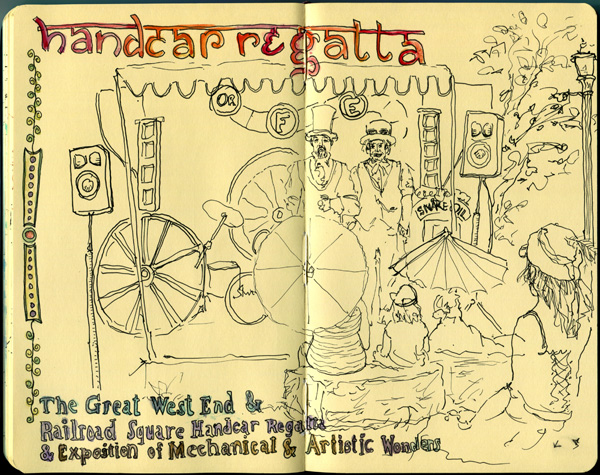 handcar regatta
OR F E
SNAKE OIL
The Great West End &
Railroad Square Handcar Regatta
& Exposition of Mechanical & Artistic Wonders